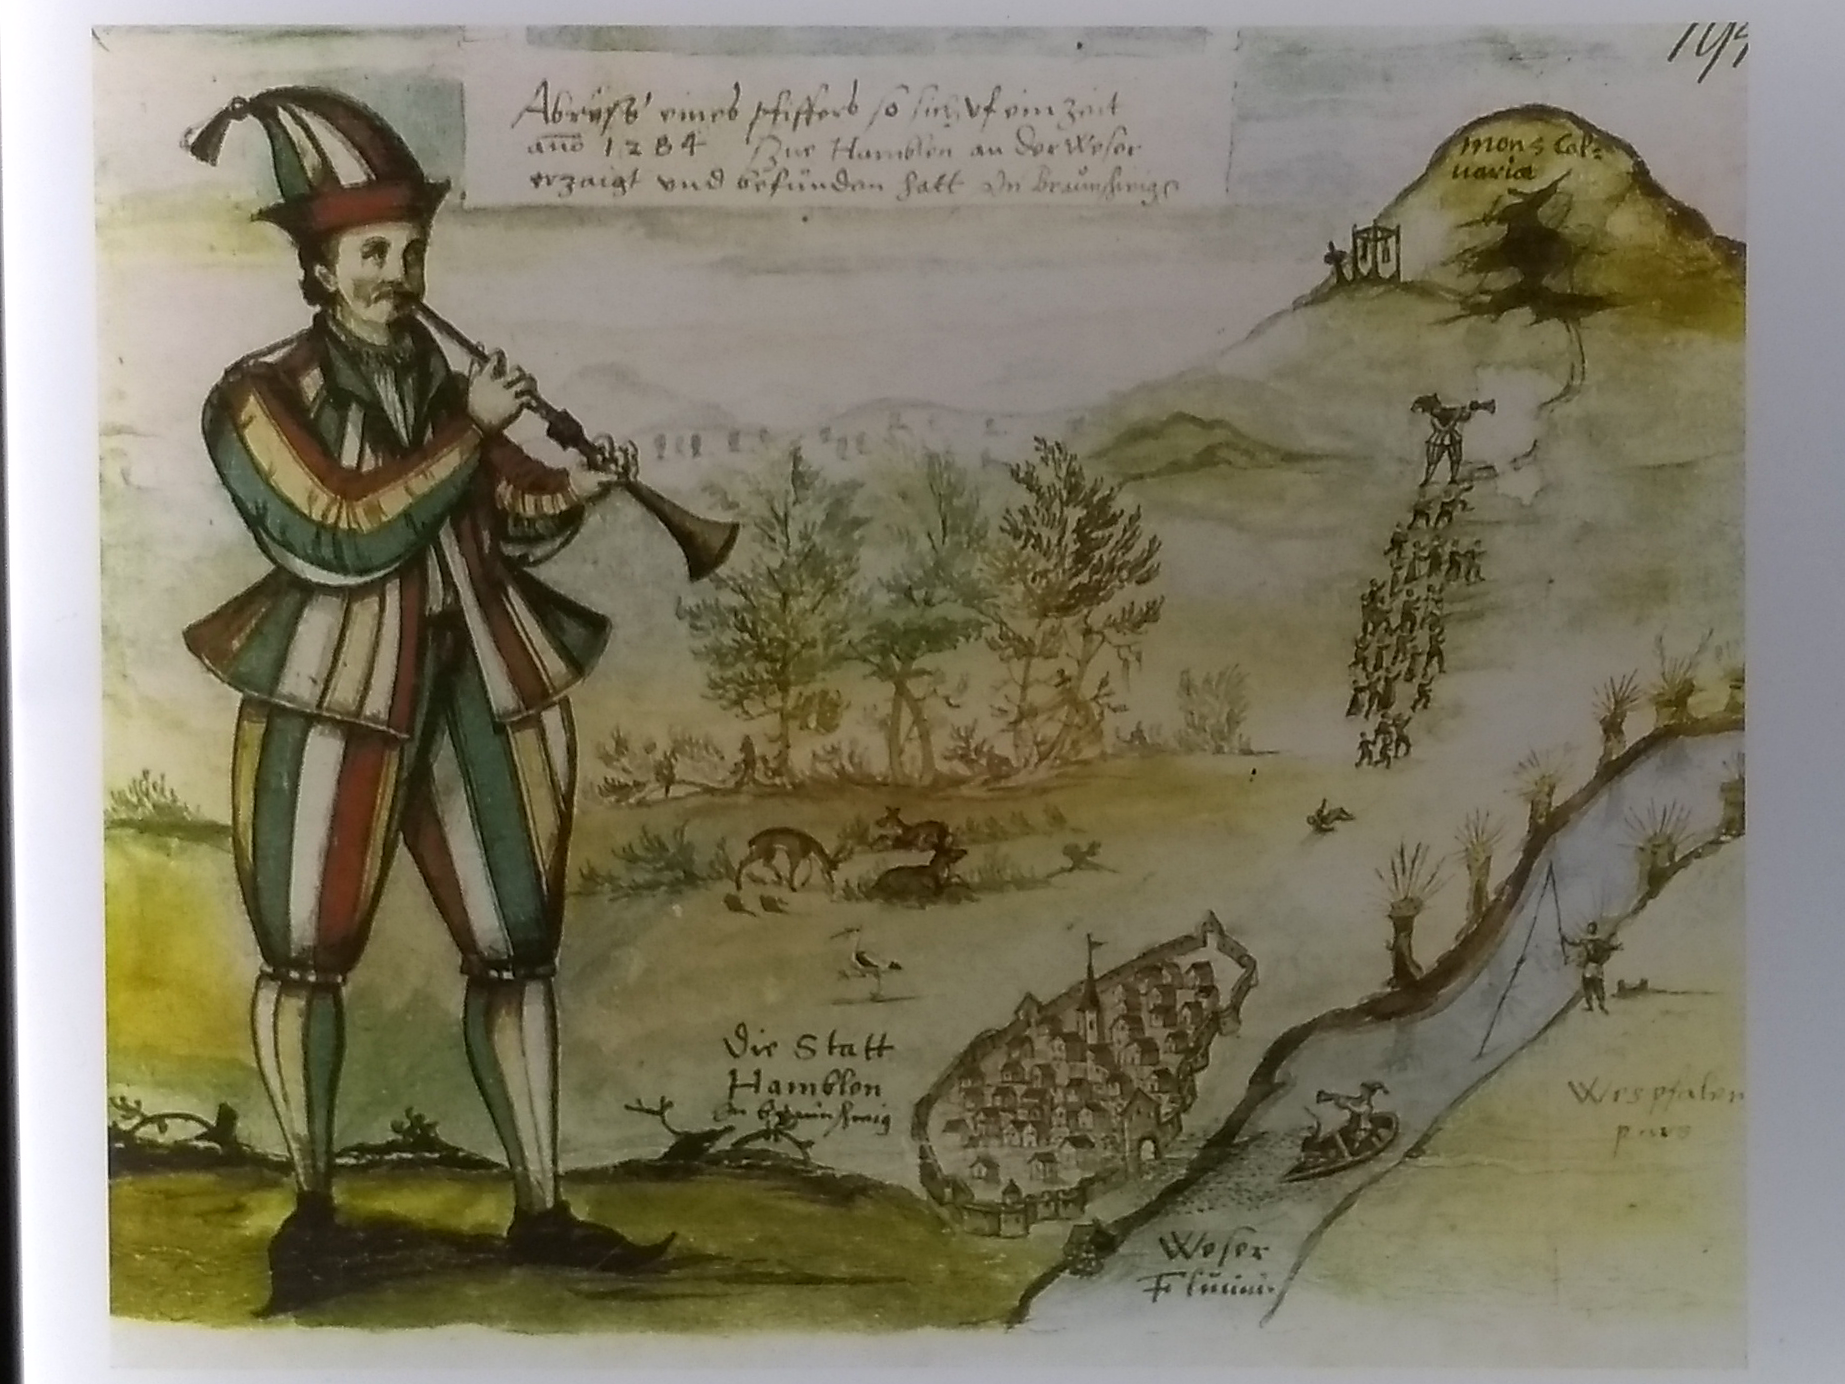 Abryss eines pfiffers so sich vf ein Zeit
año 1284 Zue Hamblen an der Weser
erzaigt und befunden hatt In Braunschweig
mons Cal=
variæ
Die Statt
Hamblen
in braunschweig
Wespfalen
Weser